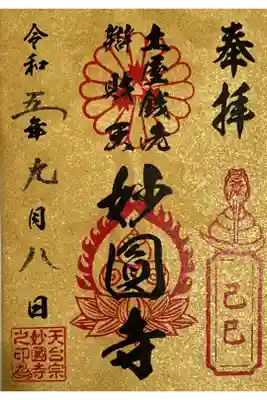 奉拝
己巳
土屋銭洗
辨財天
妙圓寺
令和五年九月八日
天台宗
妙圓寺
之印